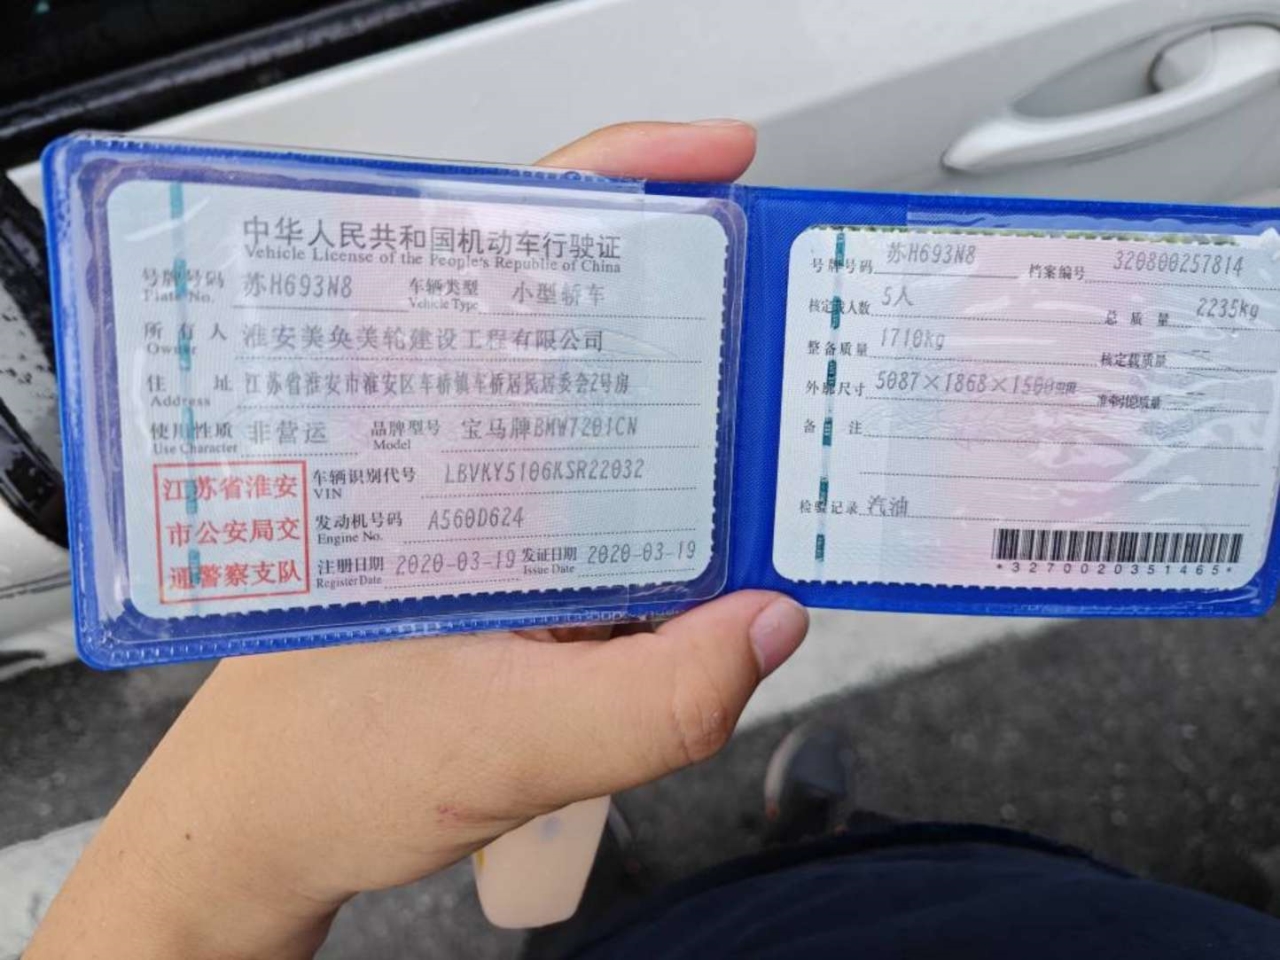 中华人民共和国机动车行驶证
Vehicle License of the People's Republic of China
号牌号码 苏H693N8 车辆类型 小型轿车
Plate No. Vehicle Type
所有人 淮安美焕美轮建设工程有限公司
Owner
住址 江苏省淮安市淮安区车桥镇车桥居民居委会2号房
Address
使用性质 非营运 品牌型号 宝马牌BMW7201CN
Use Character Model
江苏省淮安
市公安局交
通警察支队
车辆识别代号 LBVKY5106KSR22032
VIN
发动机号码 A560D624
Engine No.
注册日期 2020-03-19 发证日期 2020-03-19
Register Date Issue Date
号牌号码 苏H693N8 档案编号 320800257814
核定载人数 5人 总质量 2235kg
整备质量 1710kg 核定载质量 --
外廓尺寸 5087×1868×1500mm 准牵引总质量 --
备注
检验记录 汽油
*3270020351465*